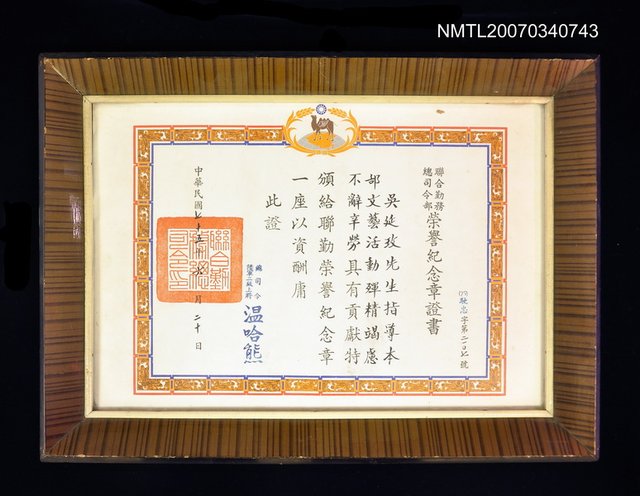 NMTL20070340743
聯合勤務
總司令部
榮譽紀念章證書
耿忠字第二〇七號
吳延玫先生指導本
部文藝活動殫精竭慮
不辭辛勞具有貢獻特
頒給聯勤榮譽紀念章
一座以資酬庸
此證
總司令
陸軍二級上將
溫哈熊
中華民國七十五年 月二十日